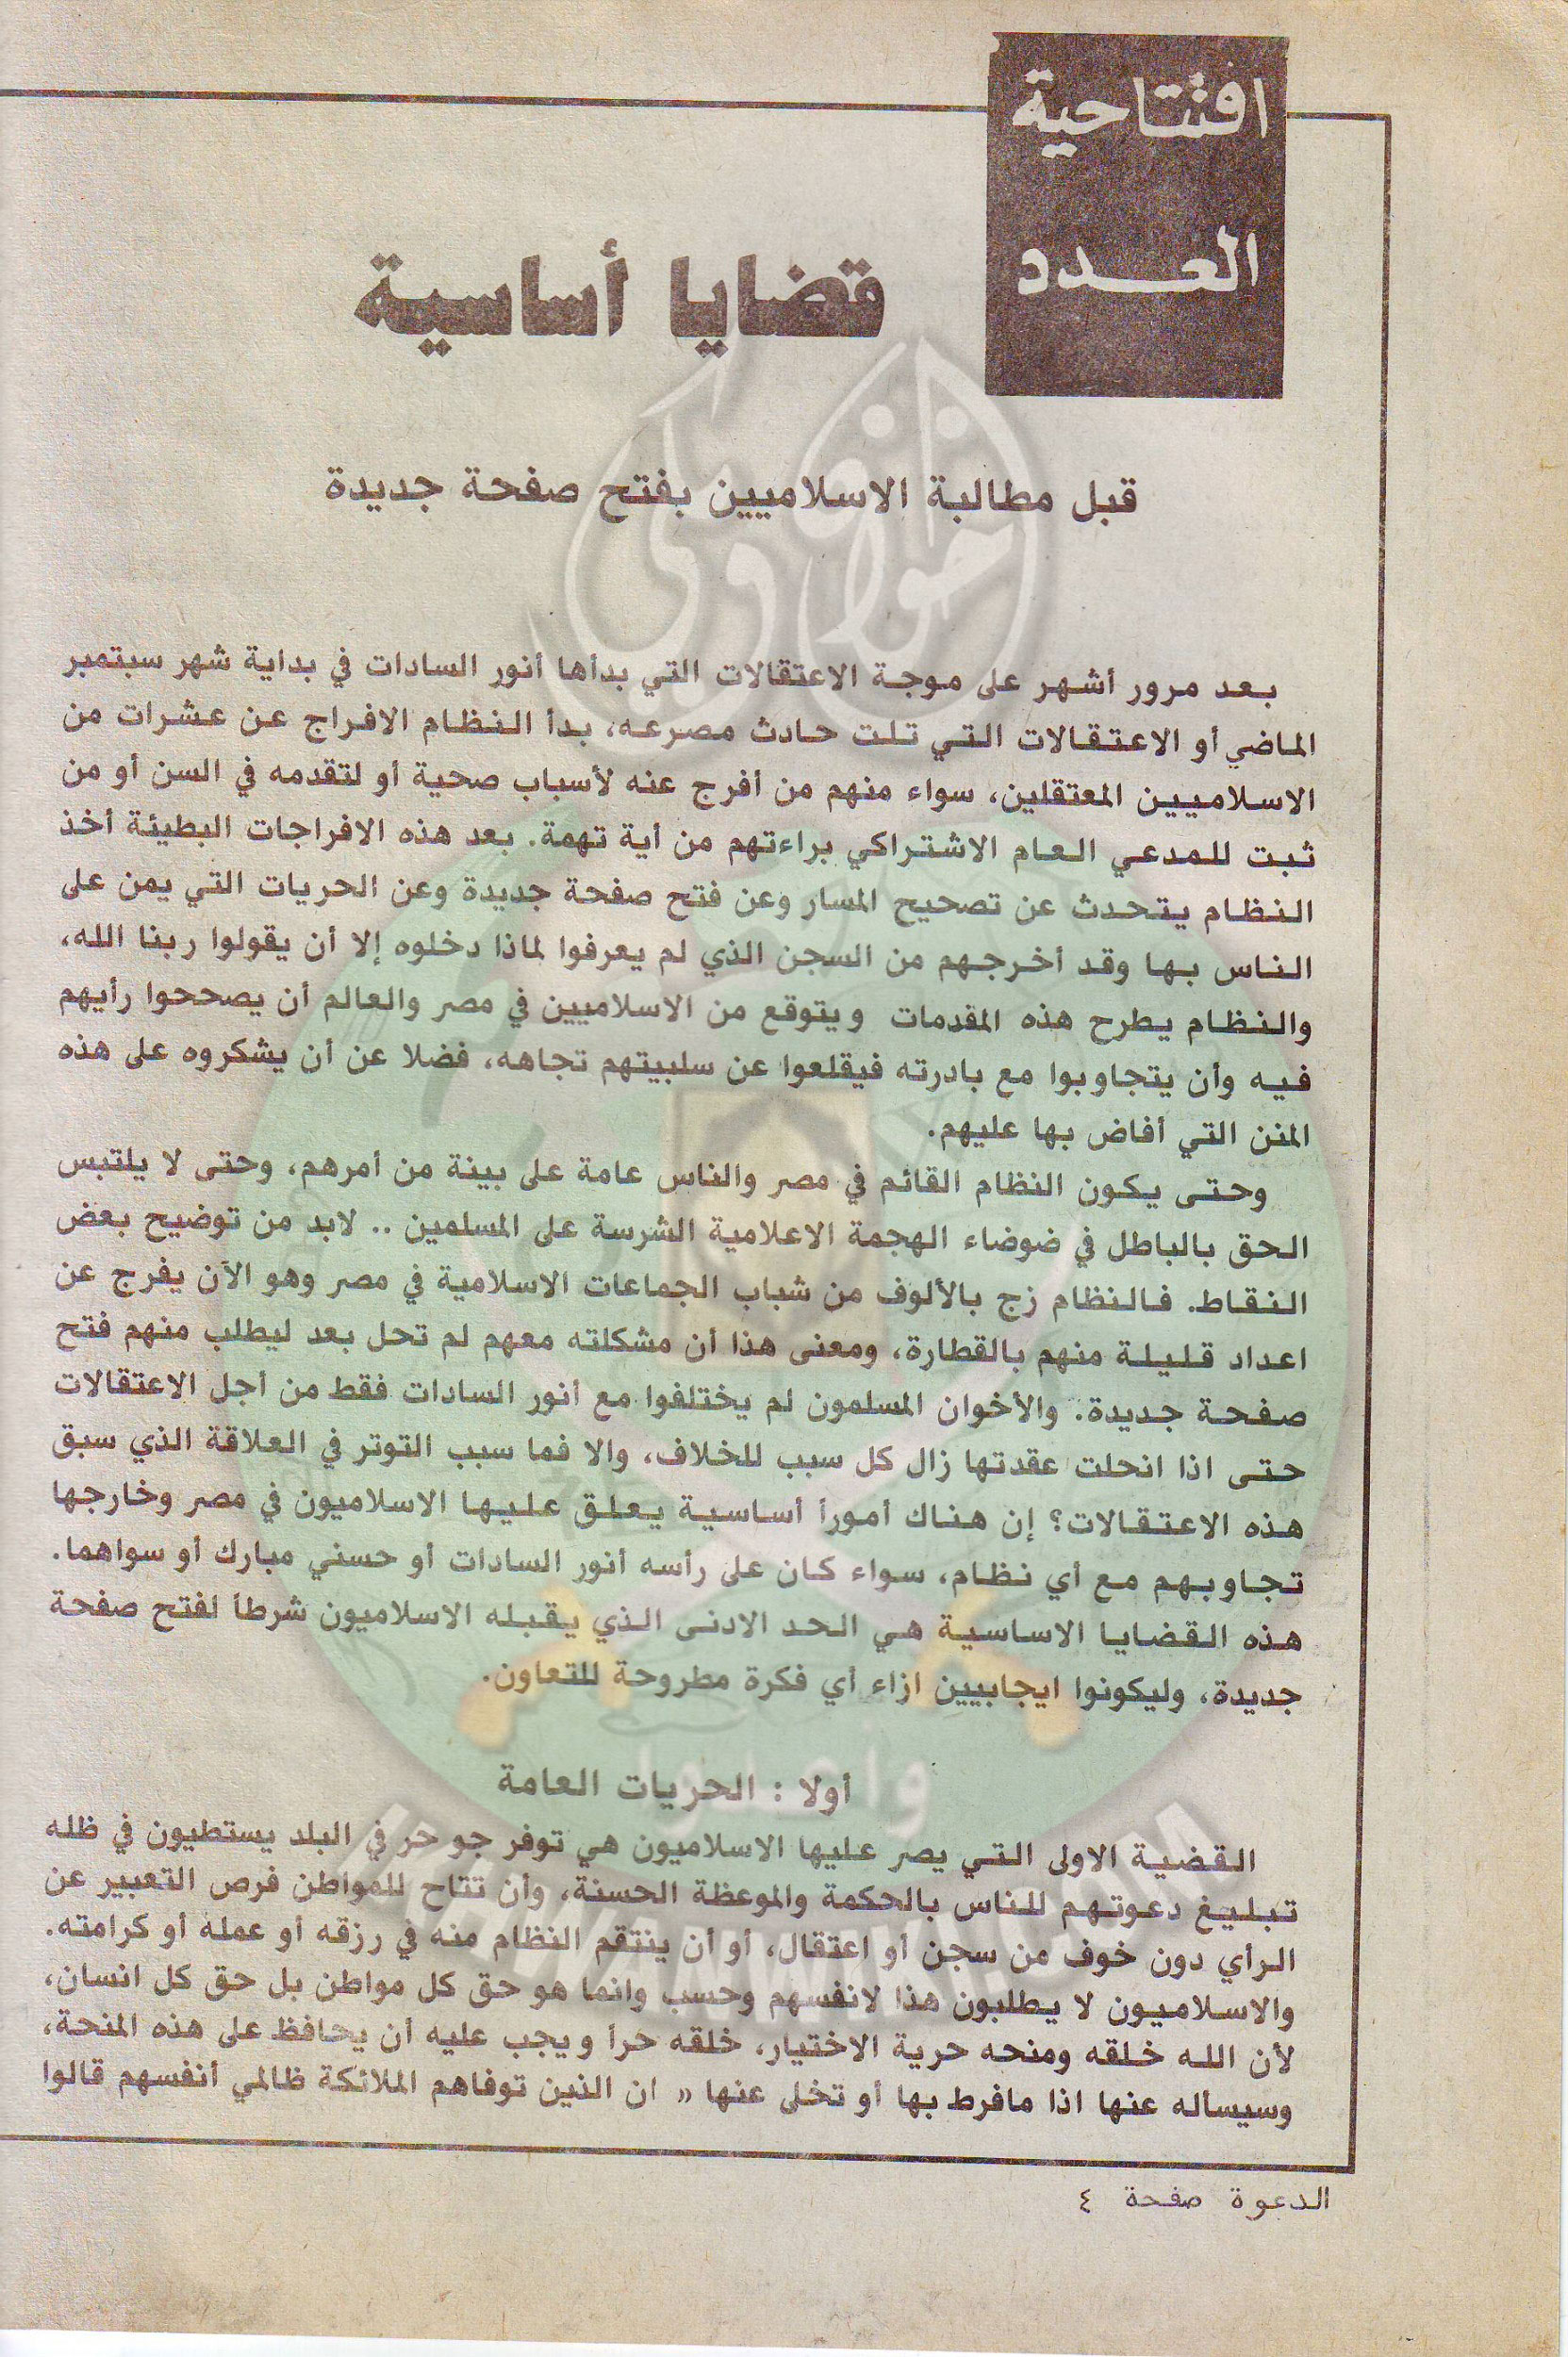 افتتاحية
العدد
قضايا أساسية
قبل مطالبة الاسلاميين بفتح صفحة جديدة
بعد مرور أشهر على موجة الاعتقالات التي بدأها أنور السادات في بداية شهر سبتمبر
الماضي أو الاعتقالات التي تلت حادث مصرعه، بدأ النظام الافراج عن عشرات من
الاسلاميين المعتقلين، سواء منهم من أفرج عنه لأسباب صحية أو لتقدمه في السن أو من
ثبت للمدعي العام الاشتراكي براءتهم من أية تهمة. بعد هذه الافراجات البطيئة أخذ
النظام يتحدث عن تصحيح المسار وعن فتح صفحة جديدة وعن الحريات التي يمن على
الناس بها وقد أخرجهم من السجن الذي لم يعرفوا لماذا دخلوه إلا أن يقولوا ربنا الله،
والنظام يطرح هذه المقدمات ويتوقع من الاسلاميين في مصر والعالم أن يصححوا رأيهم
فيه وأن يتجاوبوا مع بادرته فيقلعوا عن سلبيتهم تجاهه، فضلا عن أن يشكروه على هذه
المنن التي أفاض بها عليهم.
وحتى يكون النظام القائم في مصر والناس عامة على بينة من أمرهم، وحتى لا يلتبس
الحق بالباطل في ضوضاء الهجمة الاعلامية الشرسة على المسلمين .. لابد من توضيح بعض
النقاط. فالنظام زج بالألوف من شباب الجماعات الاسلامية في مصر وهو الآن يفرج عن
اعداد قليلة منهم بالقطارة، ومعنى هذا أن مشكلته معهم لم تحل بعد ليطلب منهم فتح
صفحة جديدة. والأخوان المسلمون لم يختلفوا مع أنور السادات فقط من أجل الاعتقالات
حتى اذا انحلت عقدتها زال كل سبب للخلاف، والا فما سبب التوتر في العلاقة الذي سبق
هذه الاعتقالات؟ إن هناك أموراً أساسية يعلق عليها الاسلاميون في مصر وخارجها
تجاوبهم مع أي نظام، سواء كان على رأسه أنور السادات أو حسني مبارك أو سواهما.
هذه القضايا الاساسية هي الحد الادنى الذي يقبله الاسلاميون شرطاً لفتح صفحة
جديدة، وليكونوا ايجابيين ازاء أي فكرة مطروحة للتعاون.
أولا : الحريات العامة
القضية الاولى التي يصر عليها الاسلاميون هي توفر جو حر في البلد يستطيون في ظله
تبليغ دعوتهم للناس بالحكمة والموعظة الحسنة، وأن تتاح للمواطن فرص التعبير عن
الرأي دون خوف من سجن أو اعتقال، أو أن ينتقم النظام منه في رزقه أو عمله أو كرامته.
والاسلاميون لا يطلبون هذا لانفسهم وحسب وانما هو حق كل مواطن بل حق كل انسان،
لأن الله خلقه ومنحه حرية الاختيار، خلقه حراً ويجب عليه أن يحافظ على هذه المنحة،
وسيسأله عنها اذا مافرط بها أو تخلى عنها « ان الذين توفاهم الملائكة ظالمي أنفسهم قالوا
الدعوة صفحة ٤